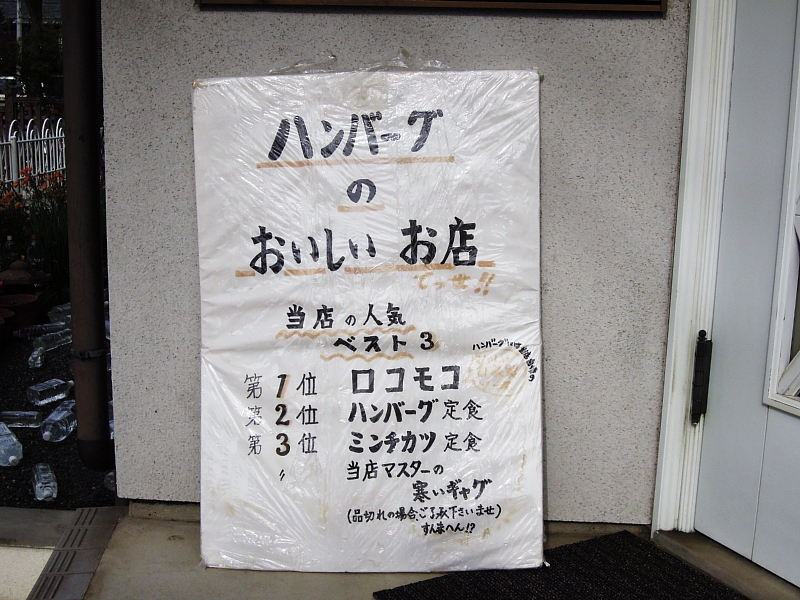 ハンバーグ
の
おいしい お店
でっせ!!
当店の人気
ベスト3
第1位 ロコモコ
第2位 ハンバーグ定食
第3位 ミンチカツ定食
〃 当店マスターの
寒いギャグ
(品切れの場合、ご了承下さいませ)
すんまへん!?
ハンバーグ